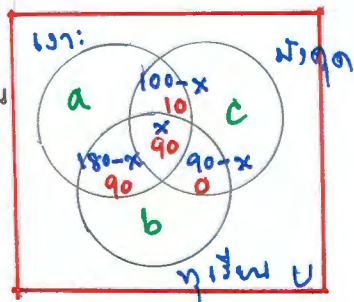 เงาะ
มังคุด
100-x
a
10
c
x
180-x
90
90-x
90
0
b
ทุเรียน U